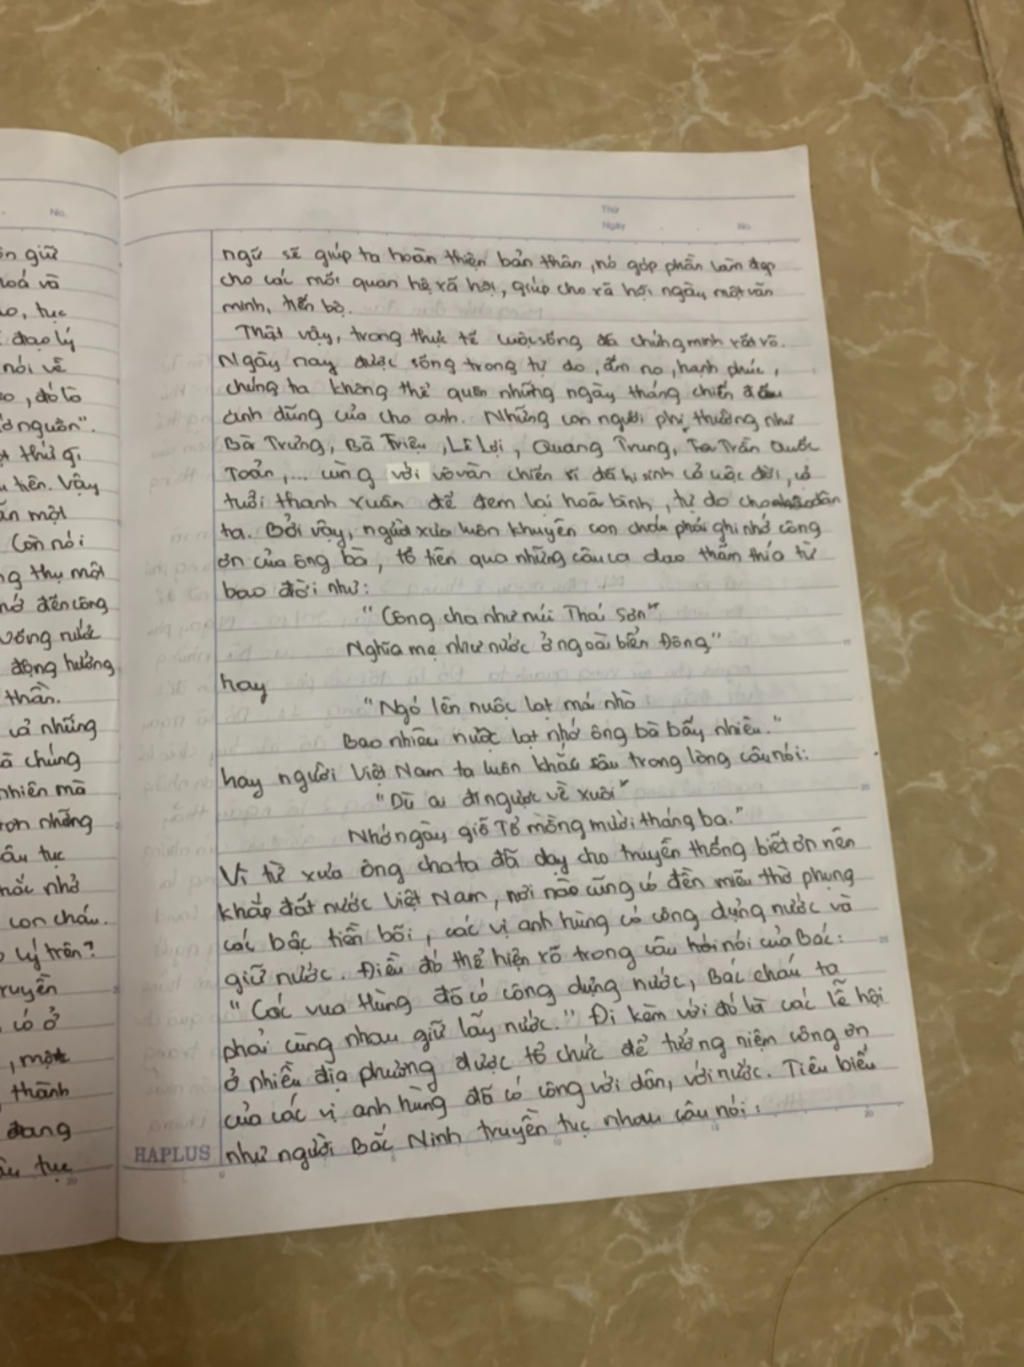 No.
ôn giữ
hoá và
ao, tục
đạo lý
nói về
ao, đó là
nhớ nguồn".
thứ gì
tiên. Vậy
ấn một
Còn nói
ng thụ một
nhớ đến công
uống nước
động hướng
thần.
và những
à chúng
nhiên mà
ơn những
âu tục
nhắc nhở
con cháu.
lý trên?
truyền
có ở
, một
thành
đang
âu tục
Thứ
Ngày No.
ngữ sẽ giúp ta hoàn thiện bản thân, nó góp phần làm đẹp
cho các mối quan hệ xã hội, giúp cho xã hội ngày một văn
minh, tiến bộ.
Thật vậy, trong thực tế cuộc sống đã chứng minh rất rõ.
Ngày nay được sống trong tự do, ấm no, hạnh phúc,
chúng ta không thể quên những ngày tháng chiến đấu
anh dũng của cha anh. Những con người phi thường như
Bà Trưng, Bà Triệu, Lê Lợi, Quang Trung, Trần Quốc
Toản,... cùng với vô vàn chiến sĩ đã hi sinh cả cuộc đời, cả
tuổi thanh xuân để đem lại hoà bình, tự do cho dân
ta. Bởi vậy, người xưa luôn khuyên con cháu phải ghi nhớ công
ơn của ông bà, tổ tiên qua những câu ca dao thấm thía từ
bao đời như:
"Công cha như núi Thái Sơn"
Nghĩa mẹ như nước ở ngoài biển Đông"
hay
"Ngó lên nuộc lạt mái nhà
Bao nhiêu nuộc lạt nhớ ông bà bấy nhiêu."
hay người Việt Nam ta luôn khắc sâu trong lòng câu nói:
"Dù ai đi ngược về xuôi"
Nhớ ngày giỗ Tổ mồng mười tháng ba."
Vì từ xưa ông cha ta đã dạy cho truyền thống biết ơn nên
khắp đất nước Việt Nam, nơi nào cũng có đền miếu thờ phụng
các bậc tiền bối, các vị anh hùng có công dựng nước và
giữ nước. Điều đó thể hiện rõ trong câu nói của Bác:
"Các vua Hùng đã có công dựng nước, Bác cháu ta
phải cùng nhau giữ lấy nước." Đi kèm với đó là các lễ hội
ở nhiều địa phương được tổ chức để tưởng niệm công ơn
của các vị anh hùng đã có công với dân, với nước. Tiêu biểu
như người Bắc Ninh truyền tục nhau câu nói:
HAPLUS